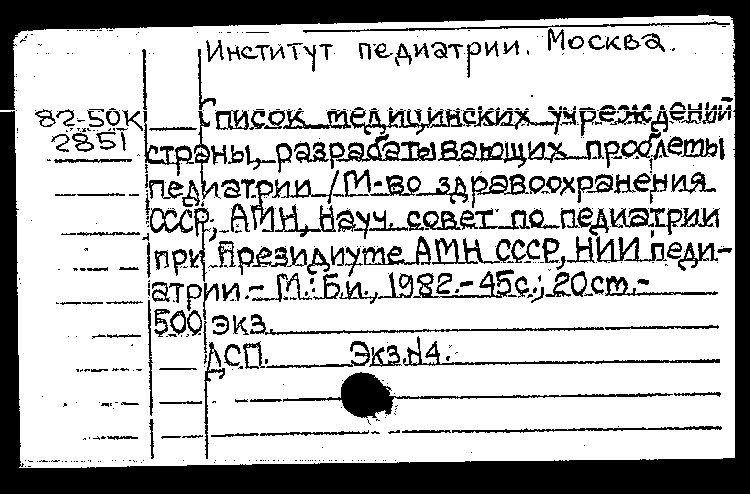 Институт педиатрии. Москва.
82-50К
2851
Список медицинских учреждений
страны, разрабатывающих проблемы
педиатрии / М-во здравоохранения
СССР, АМН, Науч. совет по педиатрии
при Президиуме АМН СССР, НИИ педи-
атрии.- М.: Б.и., 1982.- 45с.; 20см.-
500 экз.
ДСП. Экз.N4.